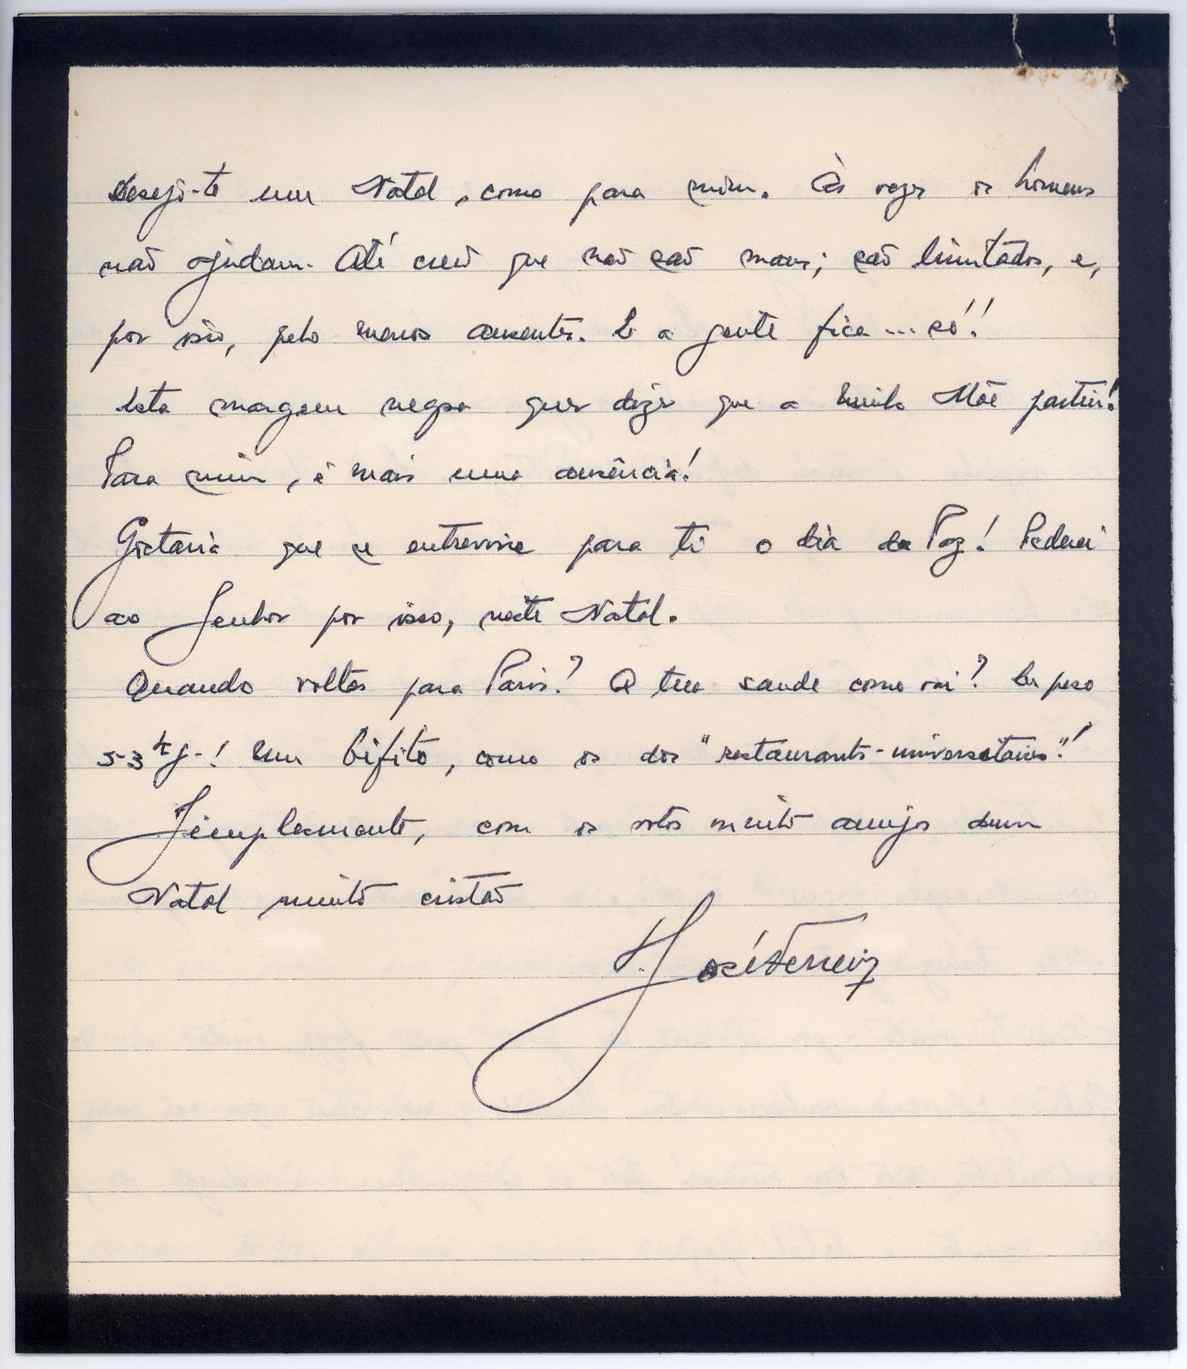 Desejo-te um Natal, como para mim. Às vezes os homens
não ajudam. Até creio que não são maus; são limitados, e,
por isso, pelo menos ausentes. E a gente fica... só!
Esta margem negra quer dizer que a minha Mãe partiu!
Para mim, é mais uma ausência!
Gostaria que se entrevisse para ti o dia da Paz! Pederei
ao Senhor por isso, neste Natal.
Quando voltas para Paris? A tua saude como vai? Eu peso
53 kg-! Um bifito, como os dos "restaurants-universitaires"!
Simplesmente, com os votos muito amigos dum
Natal muito cristão
José Ferreira